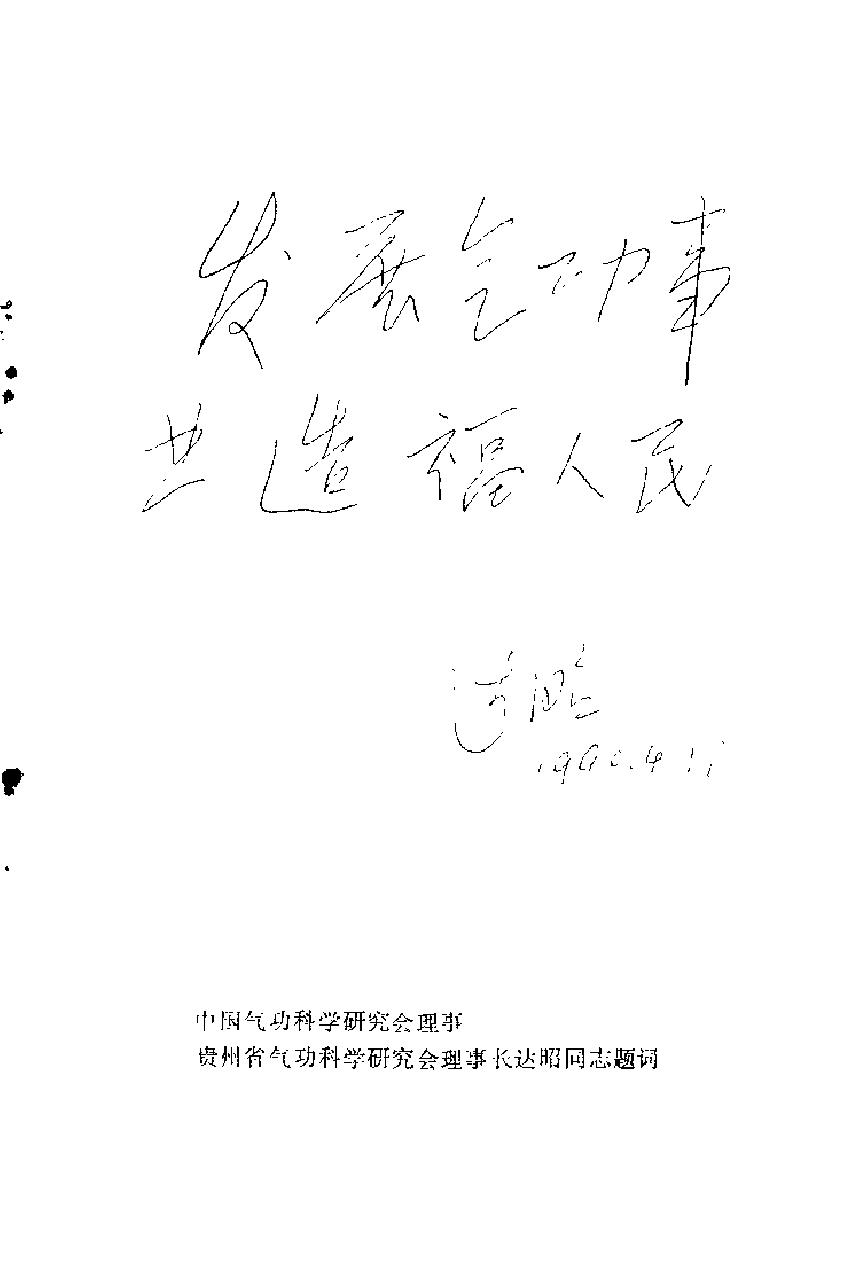 发展气功事
业造福人民
达昭
1990.4.11
中国气功科学研究会理事
贵州省气功科学研究会理事长达昭同志题词